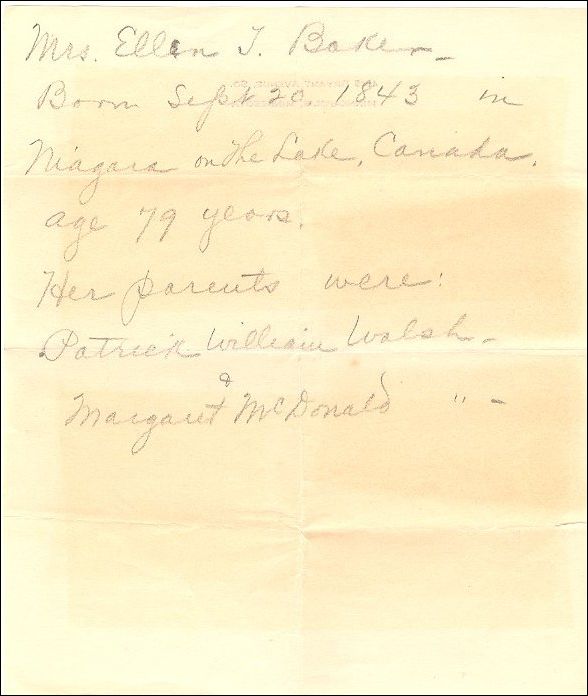 Mrs. Ellen T. Baker
Born Sept 20, 1843 in
Niagara on the Lake, Canada.
age 79 years.
Her parents were:
Patrick William Walsh -
&
Margaret McDonald " -